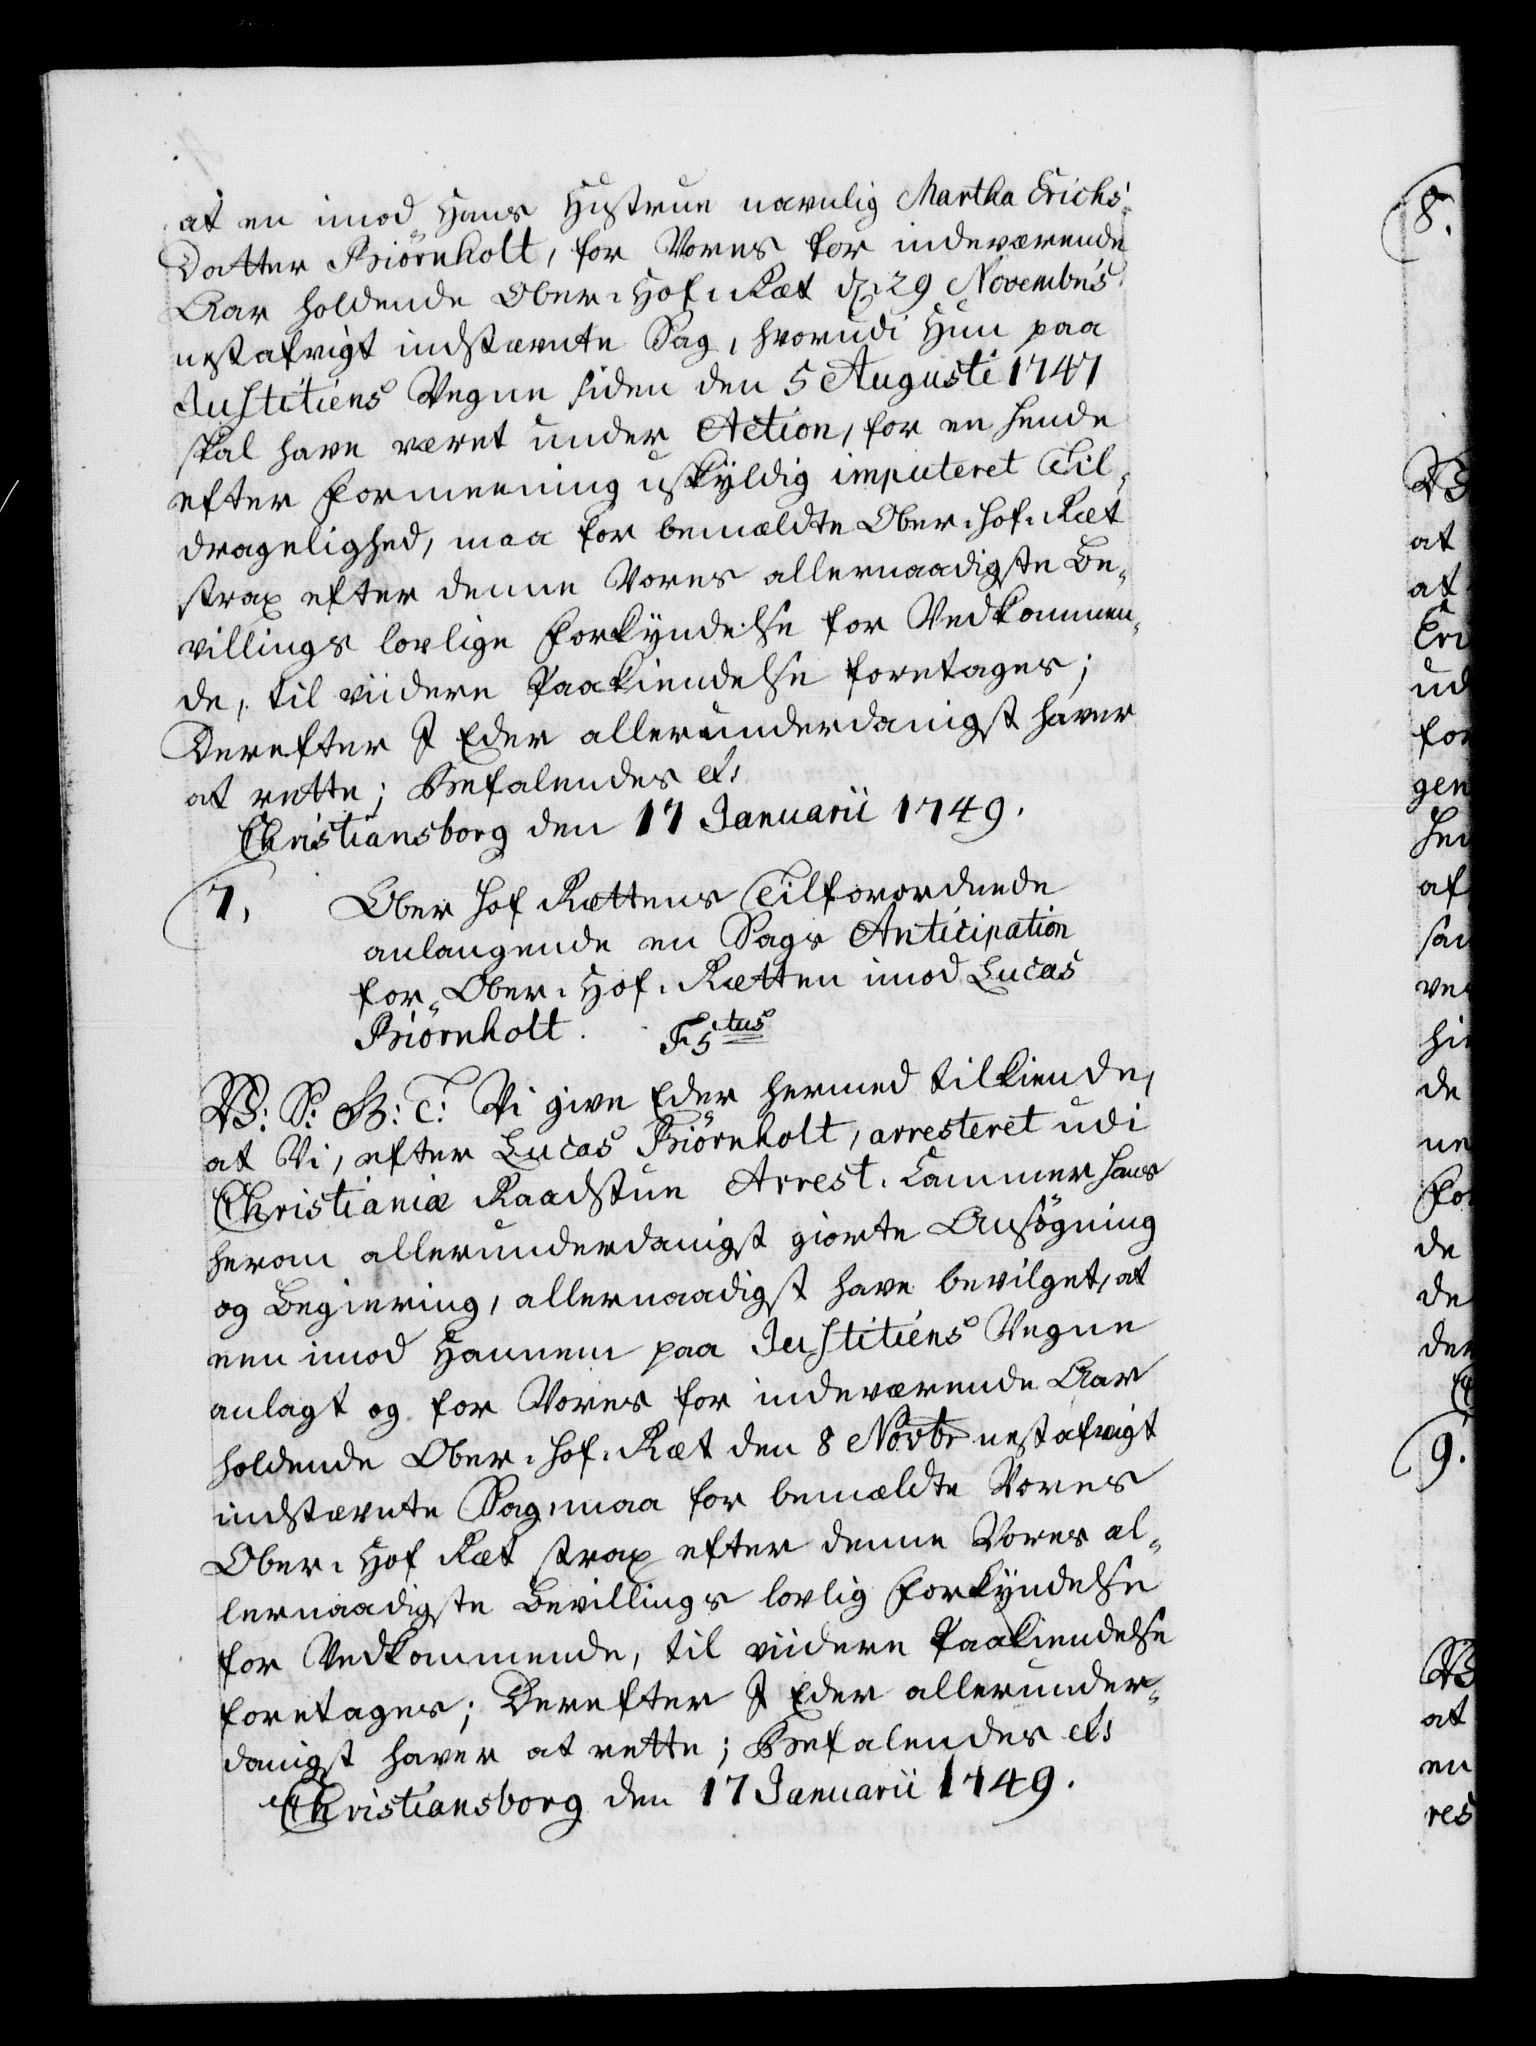 at en imod Hans Hustrue navnlig Martha Erichs-
Datter Biörnholt, for Vores for indeværende
Aar holdende Ober-Hof-Ræt d. 29 Novembris
nestafvigt indstævnte Sag, hvorudi Hun paa
Justitiens Vegne siden den 5 Augusti 1747
skal have været under Action, for en hende
efter Formeening uskyldig imputeret Til-
dragelighed, maa for bemældte Ober-Hof-Ræt
strax efter denne Vores allernaadigste Be-
villings lovlige Forkyndelse for Vedkommen-
de, til viidere Paakiendelse foretages;
Derefter I Eder allerunderdanigst haver
at rette; Befalendes etc
Christiansborg den 17 Januarii 1749.
7. Ober Hof Rettens Tilforordnede
anlangende en Sags Anticipation
for Ober-Hof-Rætten imod Lucas
Biörnholt. F 5tus
V: S: G: T: Vi give Eder hermed tilkiende,
at Vi, efter Lucas Biörnholt, arresteret udi
Christianiæ Raadstue Arrest-Cammer Hans
herom allerunderdanigst giorte Ansögning
og Begiering, allernaadigst have bevilget, at
een imod Hannem paa Justitiens Vegne
anlagt og for Vores for indeværende Aar
holdende Ober-Hof-Ræt den 8 Novbr nestafvigt
indstævnte Sag, maa for bemældte Vores
Ober-Hof Ræt strax efter denne Vores al-
lernaadigste Bevillings lovlig Forkyndelse
for Vedkommende, til viidere Paakiendelse
foretages; Derefter I Eder allerunder-
danigst haver at rette; Befalendes etc
Christiansborg den 17 Januarii 1749.
8.
at
at
ud
for
gen
af
ve
de
ne
de
de
9.
at
en
res